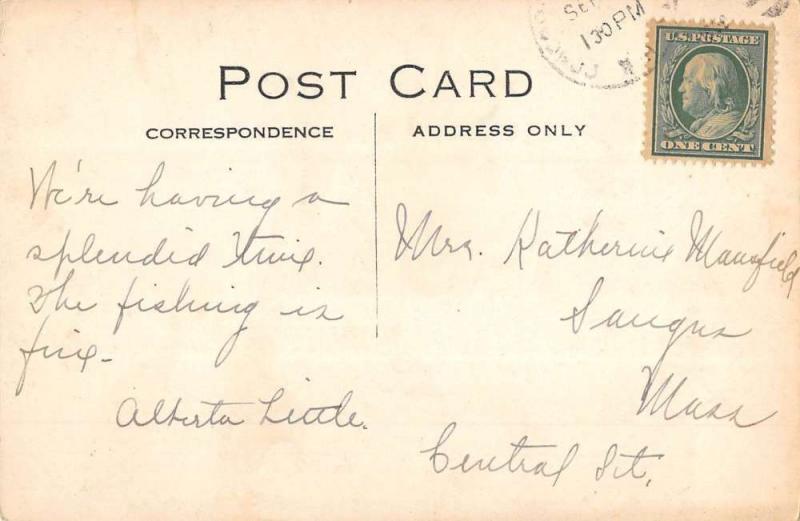 SE
130 PM
U.S. POSTAGE
ONE CENT
POST CARD
CORRESPONDENCE
ADDRESS ONLY
We're having a
splendid time.
The fishing is
fine-
Alberta Little.
Mrs. Katherine Mansfield
Saugus
Mass
Central St.